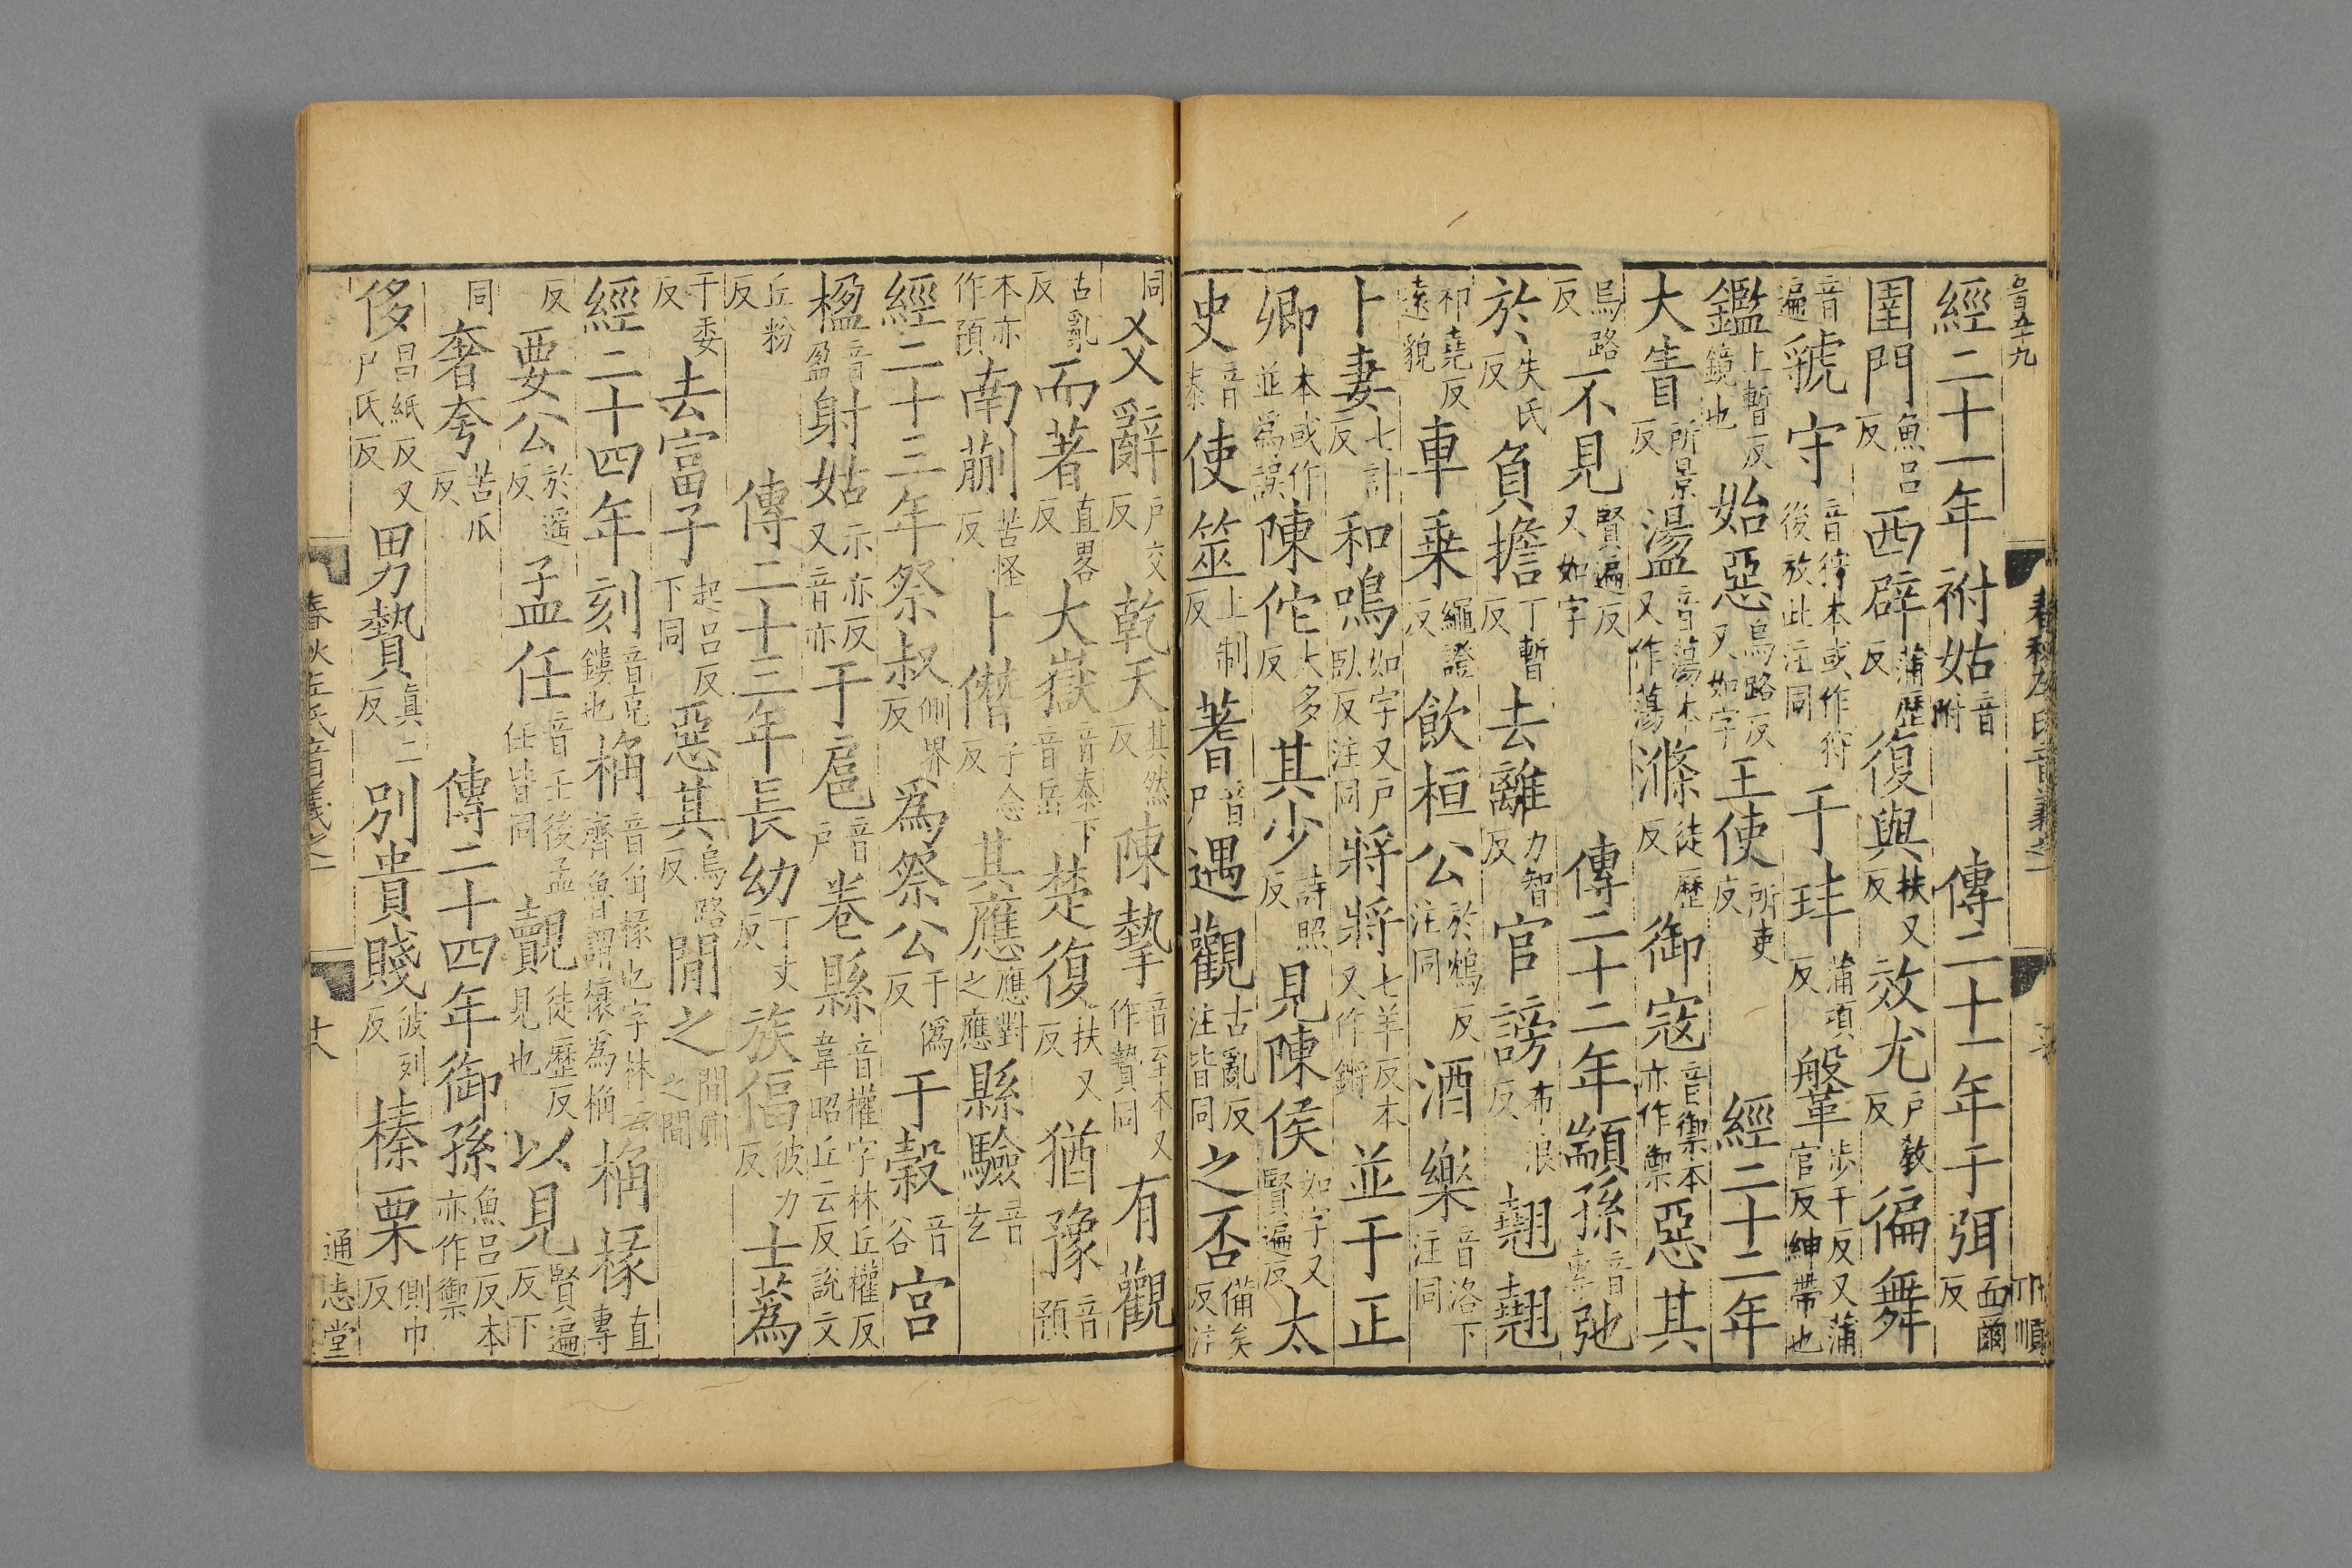 經二十一年祔姑音附 傳二十一年于弭面爾反
圉門魚呂反西辟蒲歷反復與扶又反效尤戶教反徧舞
音遍虢守音狩本或作狩後放此注同于玤蒲項反鞶革步干反又蒲官反紳帶也
鑑上暫反鏡也始惡烏路反又如字王使所吏反 經二十二年
大眚所景反盪音蕩本又作蕩滌徒歷反御寇音禦本亦作禦惡其
烏路反不見賢遍反又如字 傳二十二年顓孫音專弛
於失氏反負擔丁暫反去離力智反官謗布浪反翹翹
祁堯反遠貌車乗繩證反飲桓公於鴆反注同酒樂音洛下注同
卜妻七計反和鳴如字又戶臥反注同將將七羊反本又作鏘並于正
卿本或作並爲誤陳佗大多反其少詩照反見陳侯如字又賢遍反太
史音泰使筮上制反蓍音尸遇觀古亂反注皆同之否備矣反注
同爻辭戶交反乾天其然反陳摯音至本又作贄同有觀
古亂反而著直畧反大嶽音泰下音岳楚復扶又反猶豫音預
本亦作預南蒯苦怪反卜僭子念反其應應對之應縣驗音玄
經二十三年祭叔側界反爲祭公于僞反于穀音谷宮
楹音盈射姑示亦反又音亦于扈音戶卷縣音權字林丘權反韋昭丘云反說文
丘粉反 傳二十三年長幼丁丈反族偪彼力反士蔿
于委反去富子起呂反下同惡其烏路反間之間厠之間
經二十四年刻音克鏤也桷音角椽也字林云齊魯謂榱爲桷桷椽直專
反要公於遥反孟任音壬後孟任皆同覿徒歷反見也以見賢遍反下
同奢夸苦瓜反 傳二十四年御孫魚呂反本亦作禦
侈昌紙反又尸氏反男贄真二反別貴賤彼列反榛栗側巾反
春秋左氏音義之一
通志堂